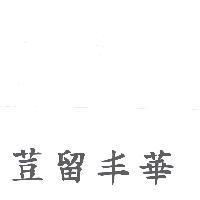 荳留丰華